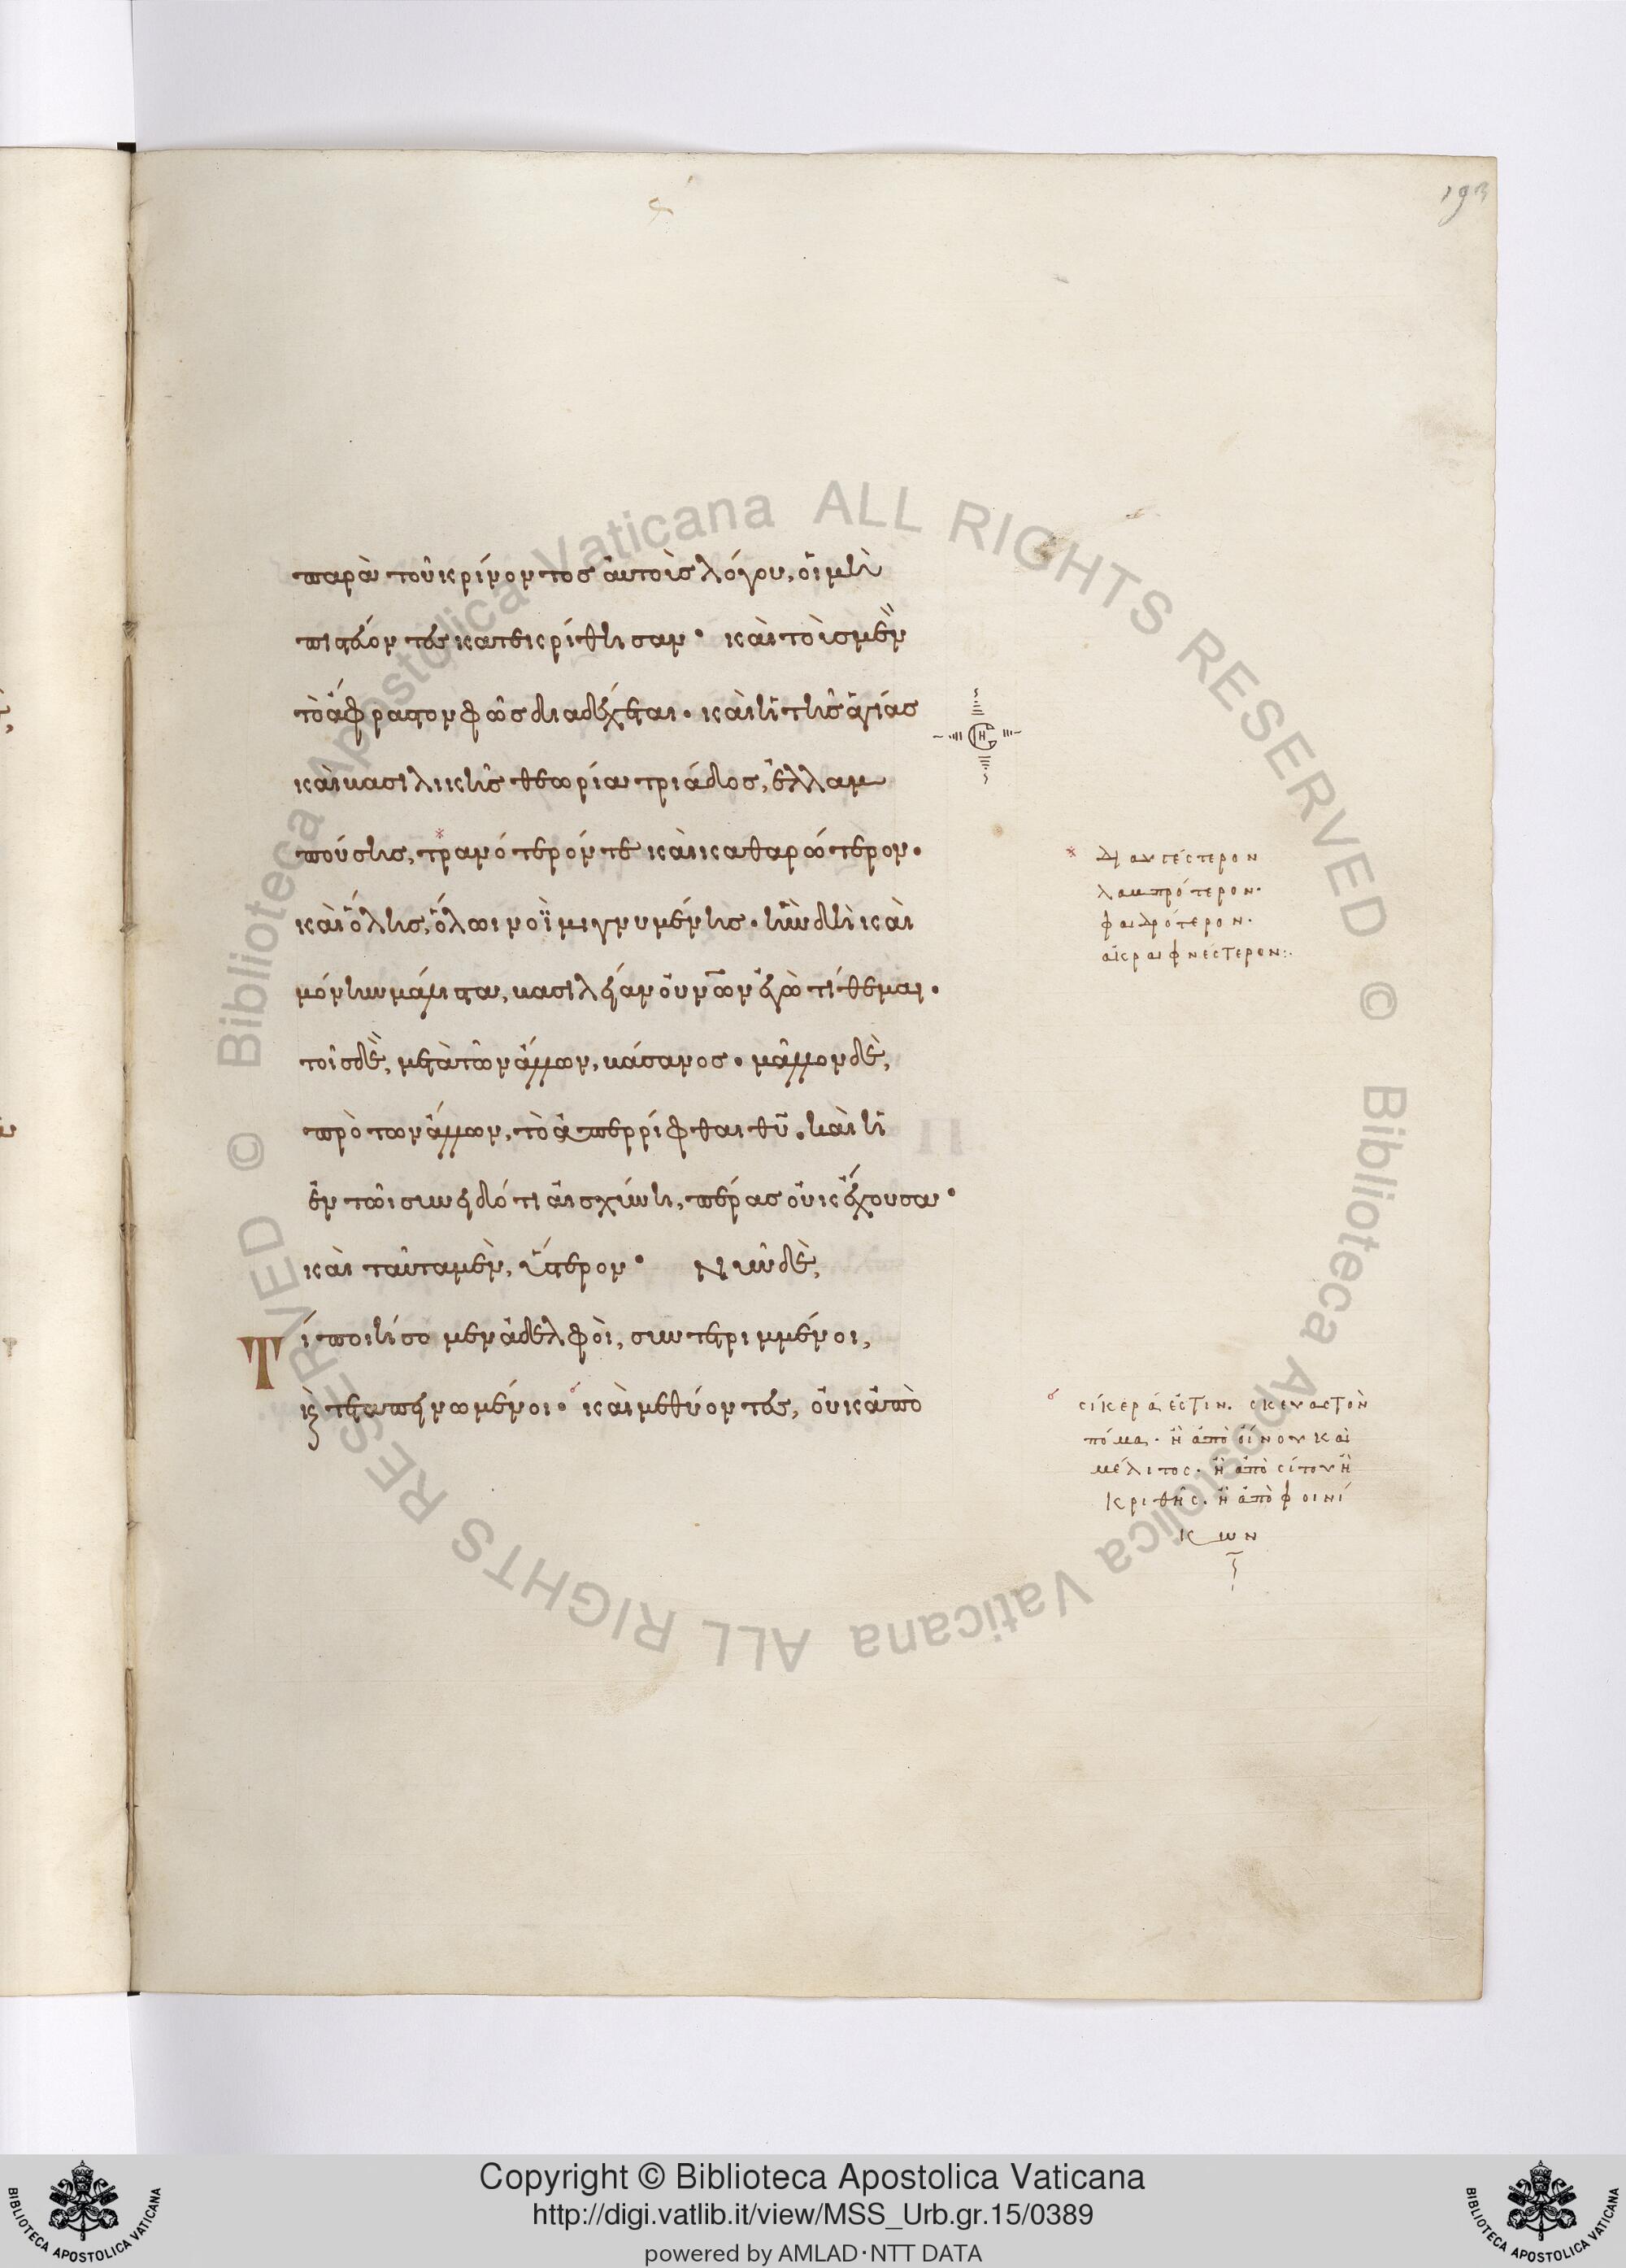 193
παρὰ τοῦ κρίνοντος αὐτοῖς λόγου, οἱ μὴ
πιστεύοντες κατεκρίθησαν· καὶ τοῖς μὲν
τὸ ἄφραστον φῶς διαδέξεται· καὶ ἡ τῆς ἁγίας
καὶ βασιλικῆς θεωρία τριάδος, ἐλλαμ
πούσης, τρανότερόν τε καὶ καθαρώτερον·
καὶ ὅλης, ὅλωι νοῒ μιγνυμένης· ἣν δὴ καὶ
μόνην μάλιστα, βασιλείαν οὐνῶν ἐγὼ τίθεμαι·
τοῖς δὲ, μετὰ τῶν ἄλλων, βάσανος· μᾶλλον δὲ,
πρὸ των ἄλλων, τὸ ἀπερρίφθαι θῦ· καὶ ἡ
ἐν τῶι συνειδότι αἰσχύνη, πέρας οὐκ ἔχουσα·
καὶ ταῦτα μὲν, ὕστερον· Νῦν δὲ,
Τί ποιήσομεν ἀδελφοὶ, συντετριμμένοι,
κ τεταπεινωμένοι· καὶ μεθύοντες, οὐκ ἀπὸ
διαυγέστερον
λαμπρότερον·
φαιδρότερον·
ἀκραιφνέστερον:·
σίκερά ἐστιν· σκευαστὸν
πόμα· ἢ ἀπὸ οἴνου καὶ
μέλιτος· ἢ ἀπὸ σίτου ἢ
κριθῆς· ἢ ἀπὸ φοινί
κων
Biblioteca Apostolica Vaticana ALL RIGHTS RESERVED ©
Biblioteca Apostolica Vaticana ALL RIGHTS RESERVED ©
Copyright © Biblioteca Apostolica Vaticana
http://digi.vatlib.it/view/MSS_Urb.gr.15/0389
powered by AMLAD·NTT DATA
BIBLIOTECA APOSTOLICA VATICANA
BIBLIOTECA APOSTOLICA VATICANA